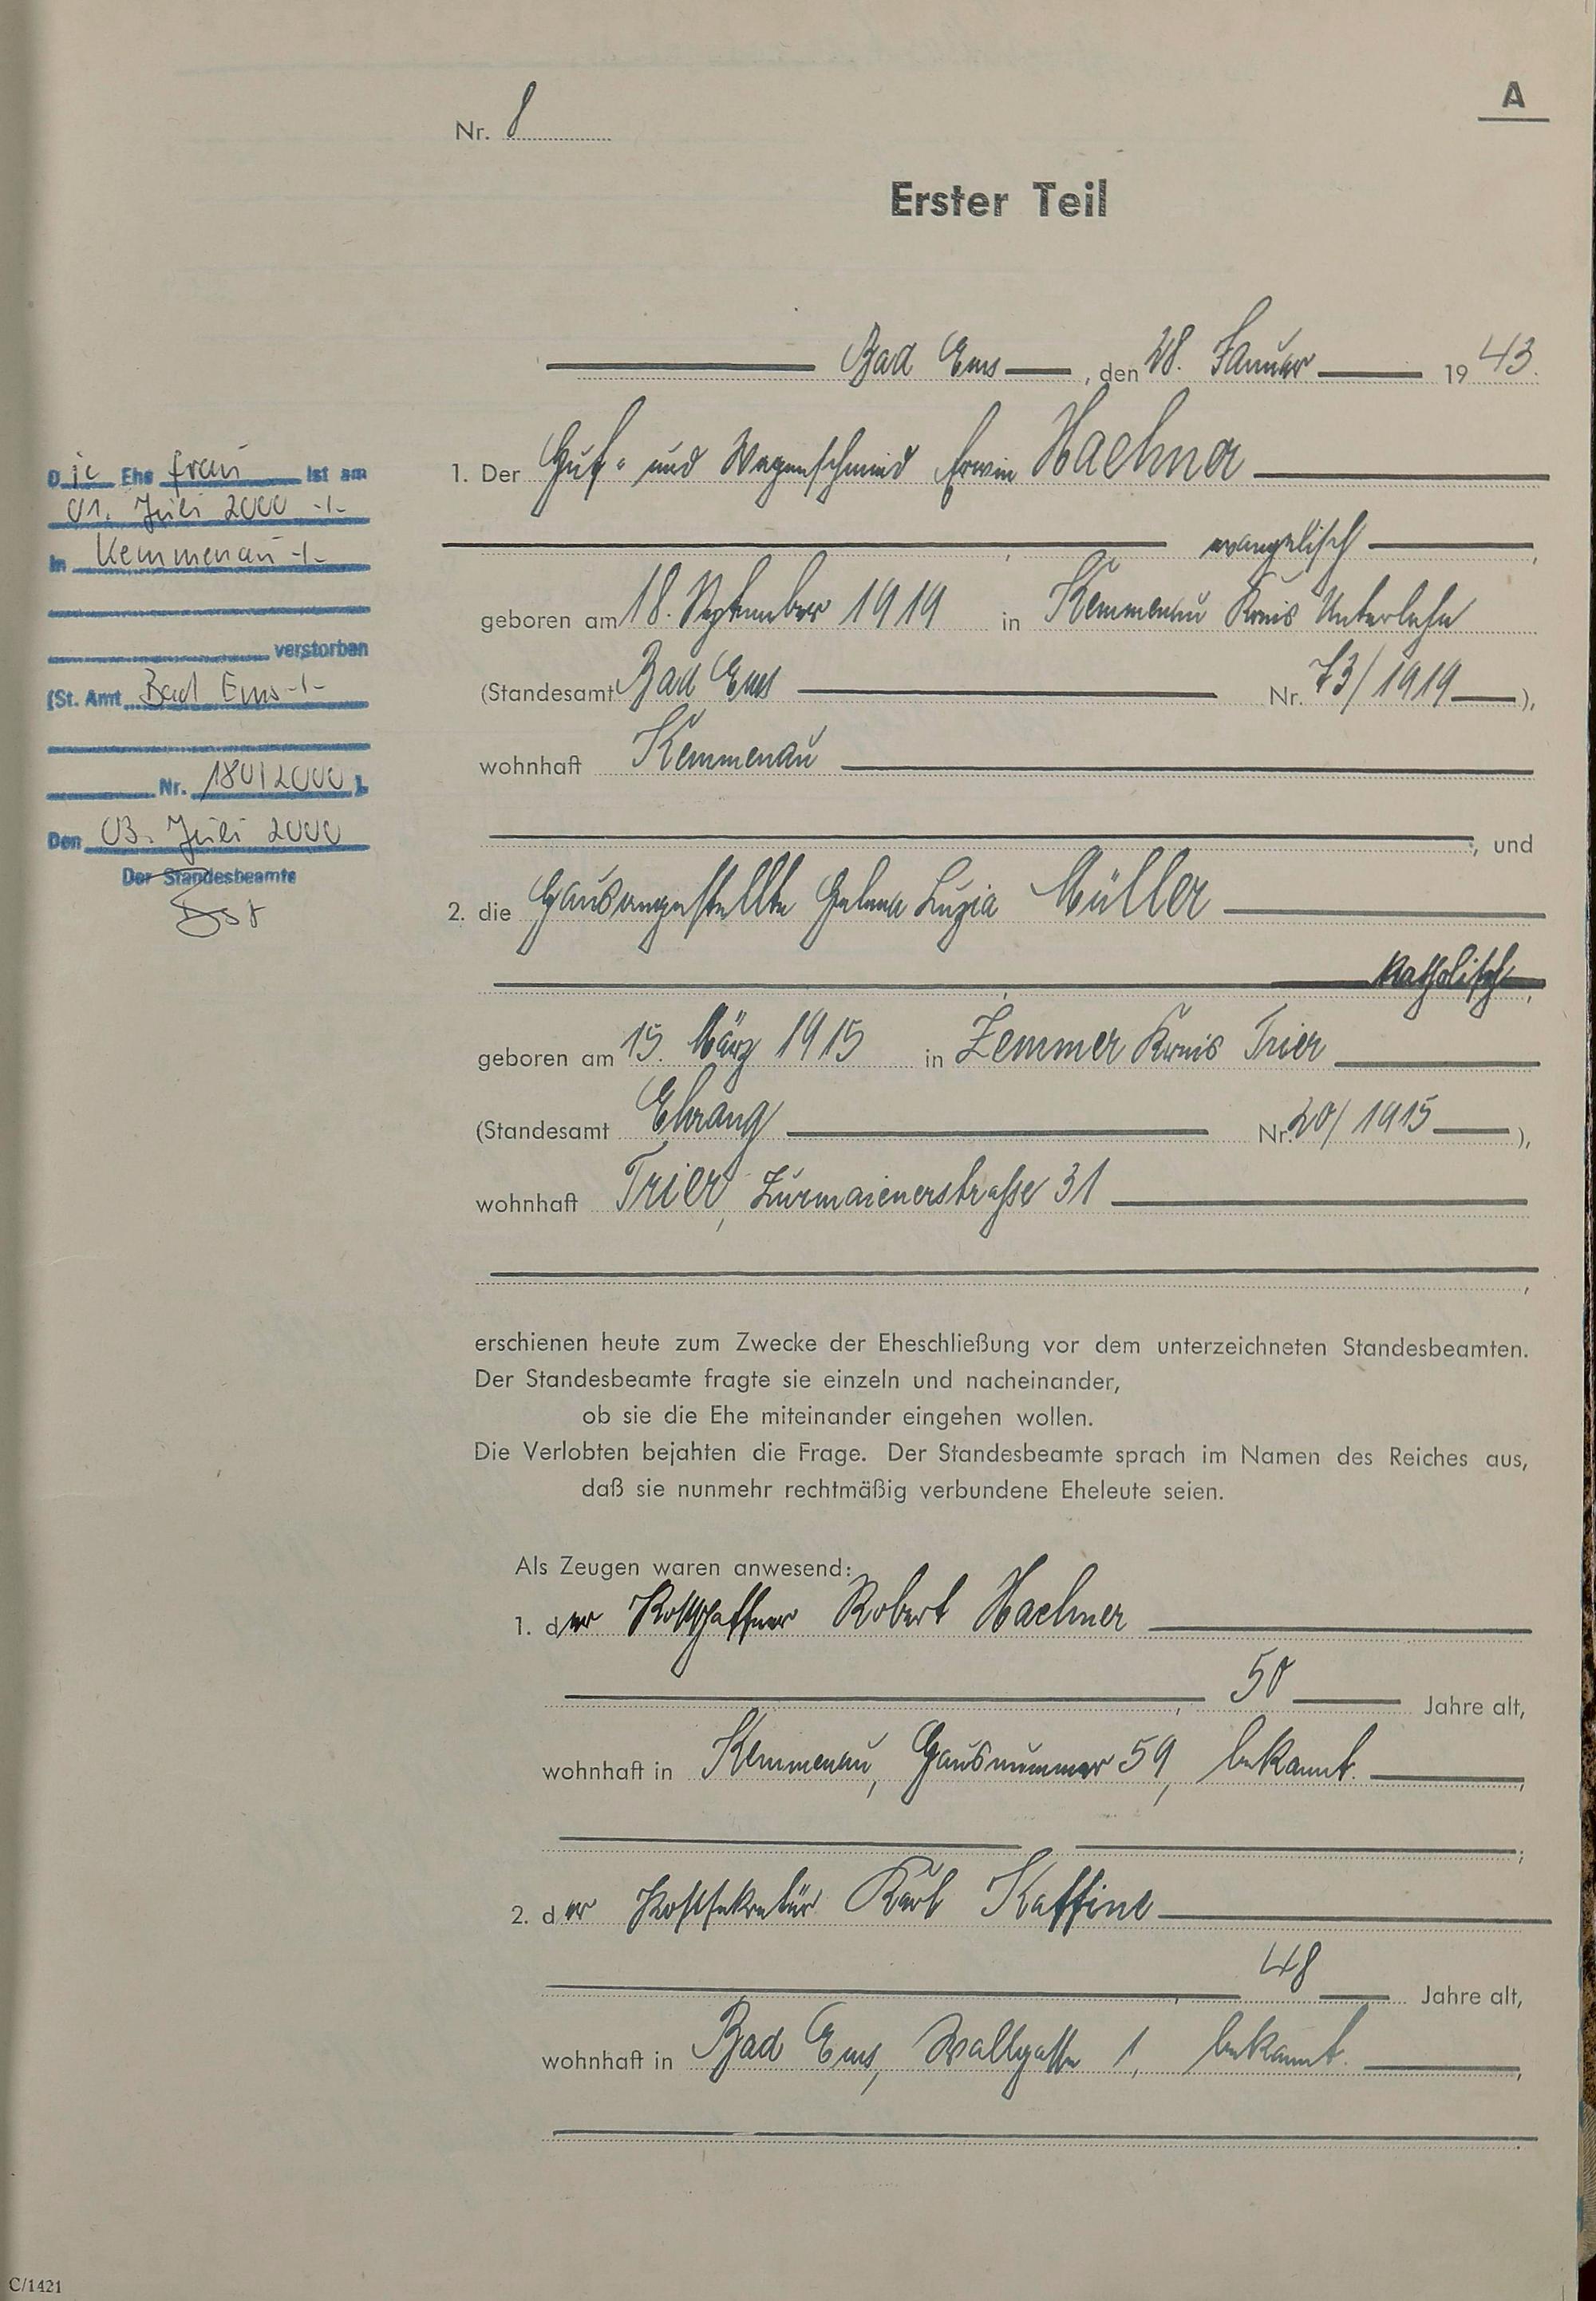 A
Nr. 8
Erster Teil
Bad Ems, den 28. Januar 1943.
1. Der Huf- und Wagenschmied Erwin Haehner
evangelisch,
geboren am 18. September 1919 in Kemmenau Kreis Unterlahn
(Standesamt Bad Ems Nr. 73/1919),
wohnhaft Kemmenau
, und
2. die Hausangestellte Helena Luzia Müller
katholisch,
geboren am 15. März 1915 in Zemmer Kreis Trier
(Standesamt Ehrang Nr. 20/1915),
wohnhaft Trier, Zurmaienerstraße 31
,
erschienen heute zum Zwecke der Eheschließung vor dem unterzeichneten Standesbeamten.
Der Standesbeamte fragte sie einzeln und nacheinander,
ob sie die Ehe miteinander eingehen wollen.
Die Verlobten bejahten die Frage. Der Standesbeamte sprach im Namen des Reiches aus,
daß sie nunmehr rechtmäßig verbundene Eheleute seien.
Als Zeugen waren anwesend:
1. der Postschaffner Robert Haehner
, 50 Jahre alt,
wohnhaft in Kemmenau, Hausnummer 59, bekannt.,
;
2. der Postsekretär Karl Kaffine
, 48 Jahre alt,
wohnhaft in Bad Ems, Wallgasse 1, bekannt.,
Die Ehefrau ist am
01. Juli 2000 -/-
in Kemmenau -/-
verstorben
(St. Amt Bad Ems -/-
Nr. 180/2000).
Den 03. Juli 2000
Der Standesbeamte
C/1421